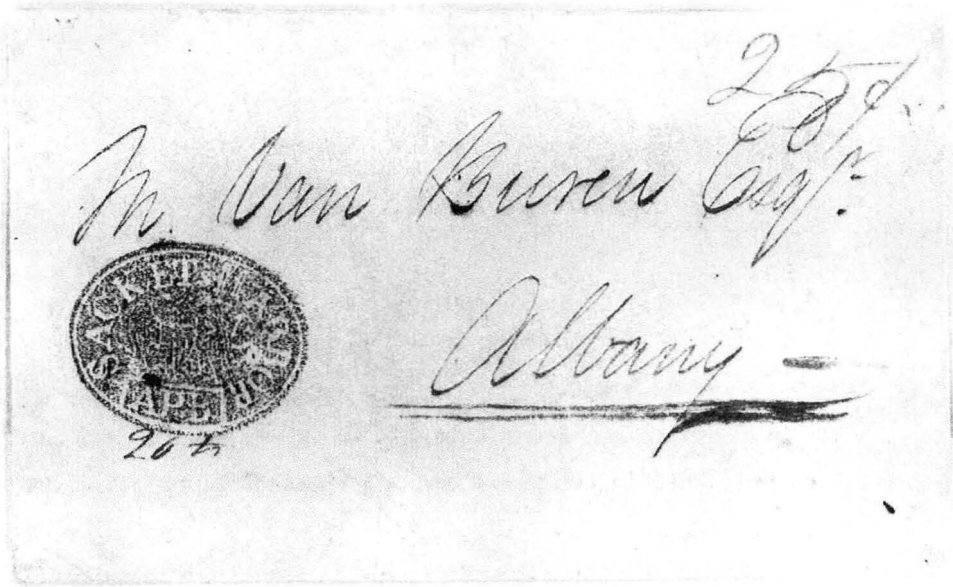 25
M. Van Buren Esqr.
Albany
SACKET HARBOR
20th